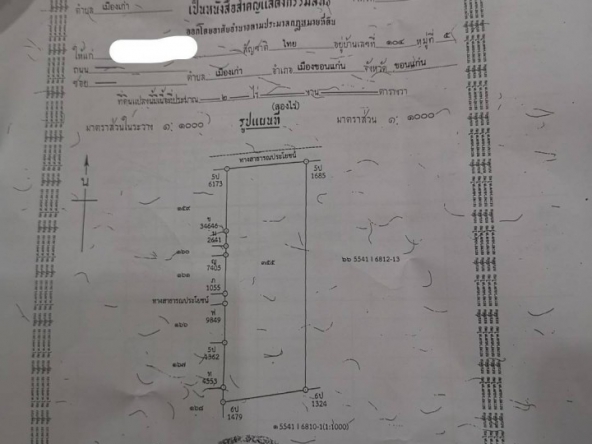 ตำบล เมืองเก่า เป็นหนังสือสำคัญแสดงกรรมสิทธิ์
ออกโดยอาศัยอำนาจตามประมวลกฎหมายที่ดิน
ให้แก่ สัญชาติ ไทย อยู่บ้านเลขที่ ๑๐๔ หมู่ที่ ๕
ถนน
ซอย ตำบล เมืองเก่า อำเภอ เมืองขอนแก่น จังหวัด ขอนแก่น
ที่ดินแปลงนี้มีเนื้อที่ประมาณ ๒ ไร่ งาน ตารางวา
(สองไร่)
มาตราส่วนในระวาง ๑: ๑๐๐๐ รูปแผนที่ มาตราส่วน ๑: ๑๐๐๐
น
ทางสาธารณประโยชน์
6173
รป
1685
๑๕๙
54646
2641
๑๖๐
ญ
7405
๑๕๕
๒๖ 5541 I 6812-13
๑๖๑
ภ
1055
ทางสาธารณประโยชน์
ฟ
9849
๑๖๖
1862
๑๖๗
ท
4553
๑๖๘
1479
1324
๑ 5541 I 6810-1(1:1000)